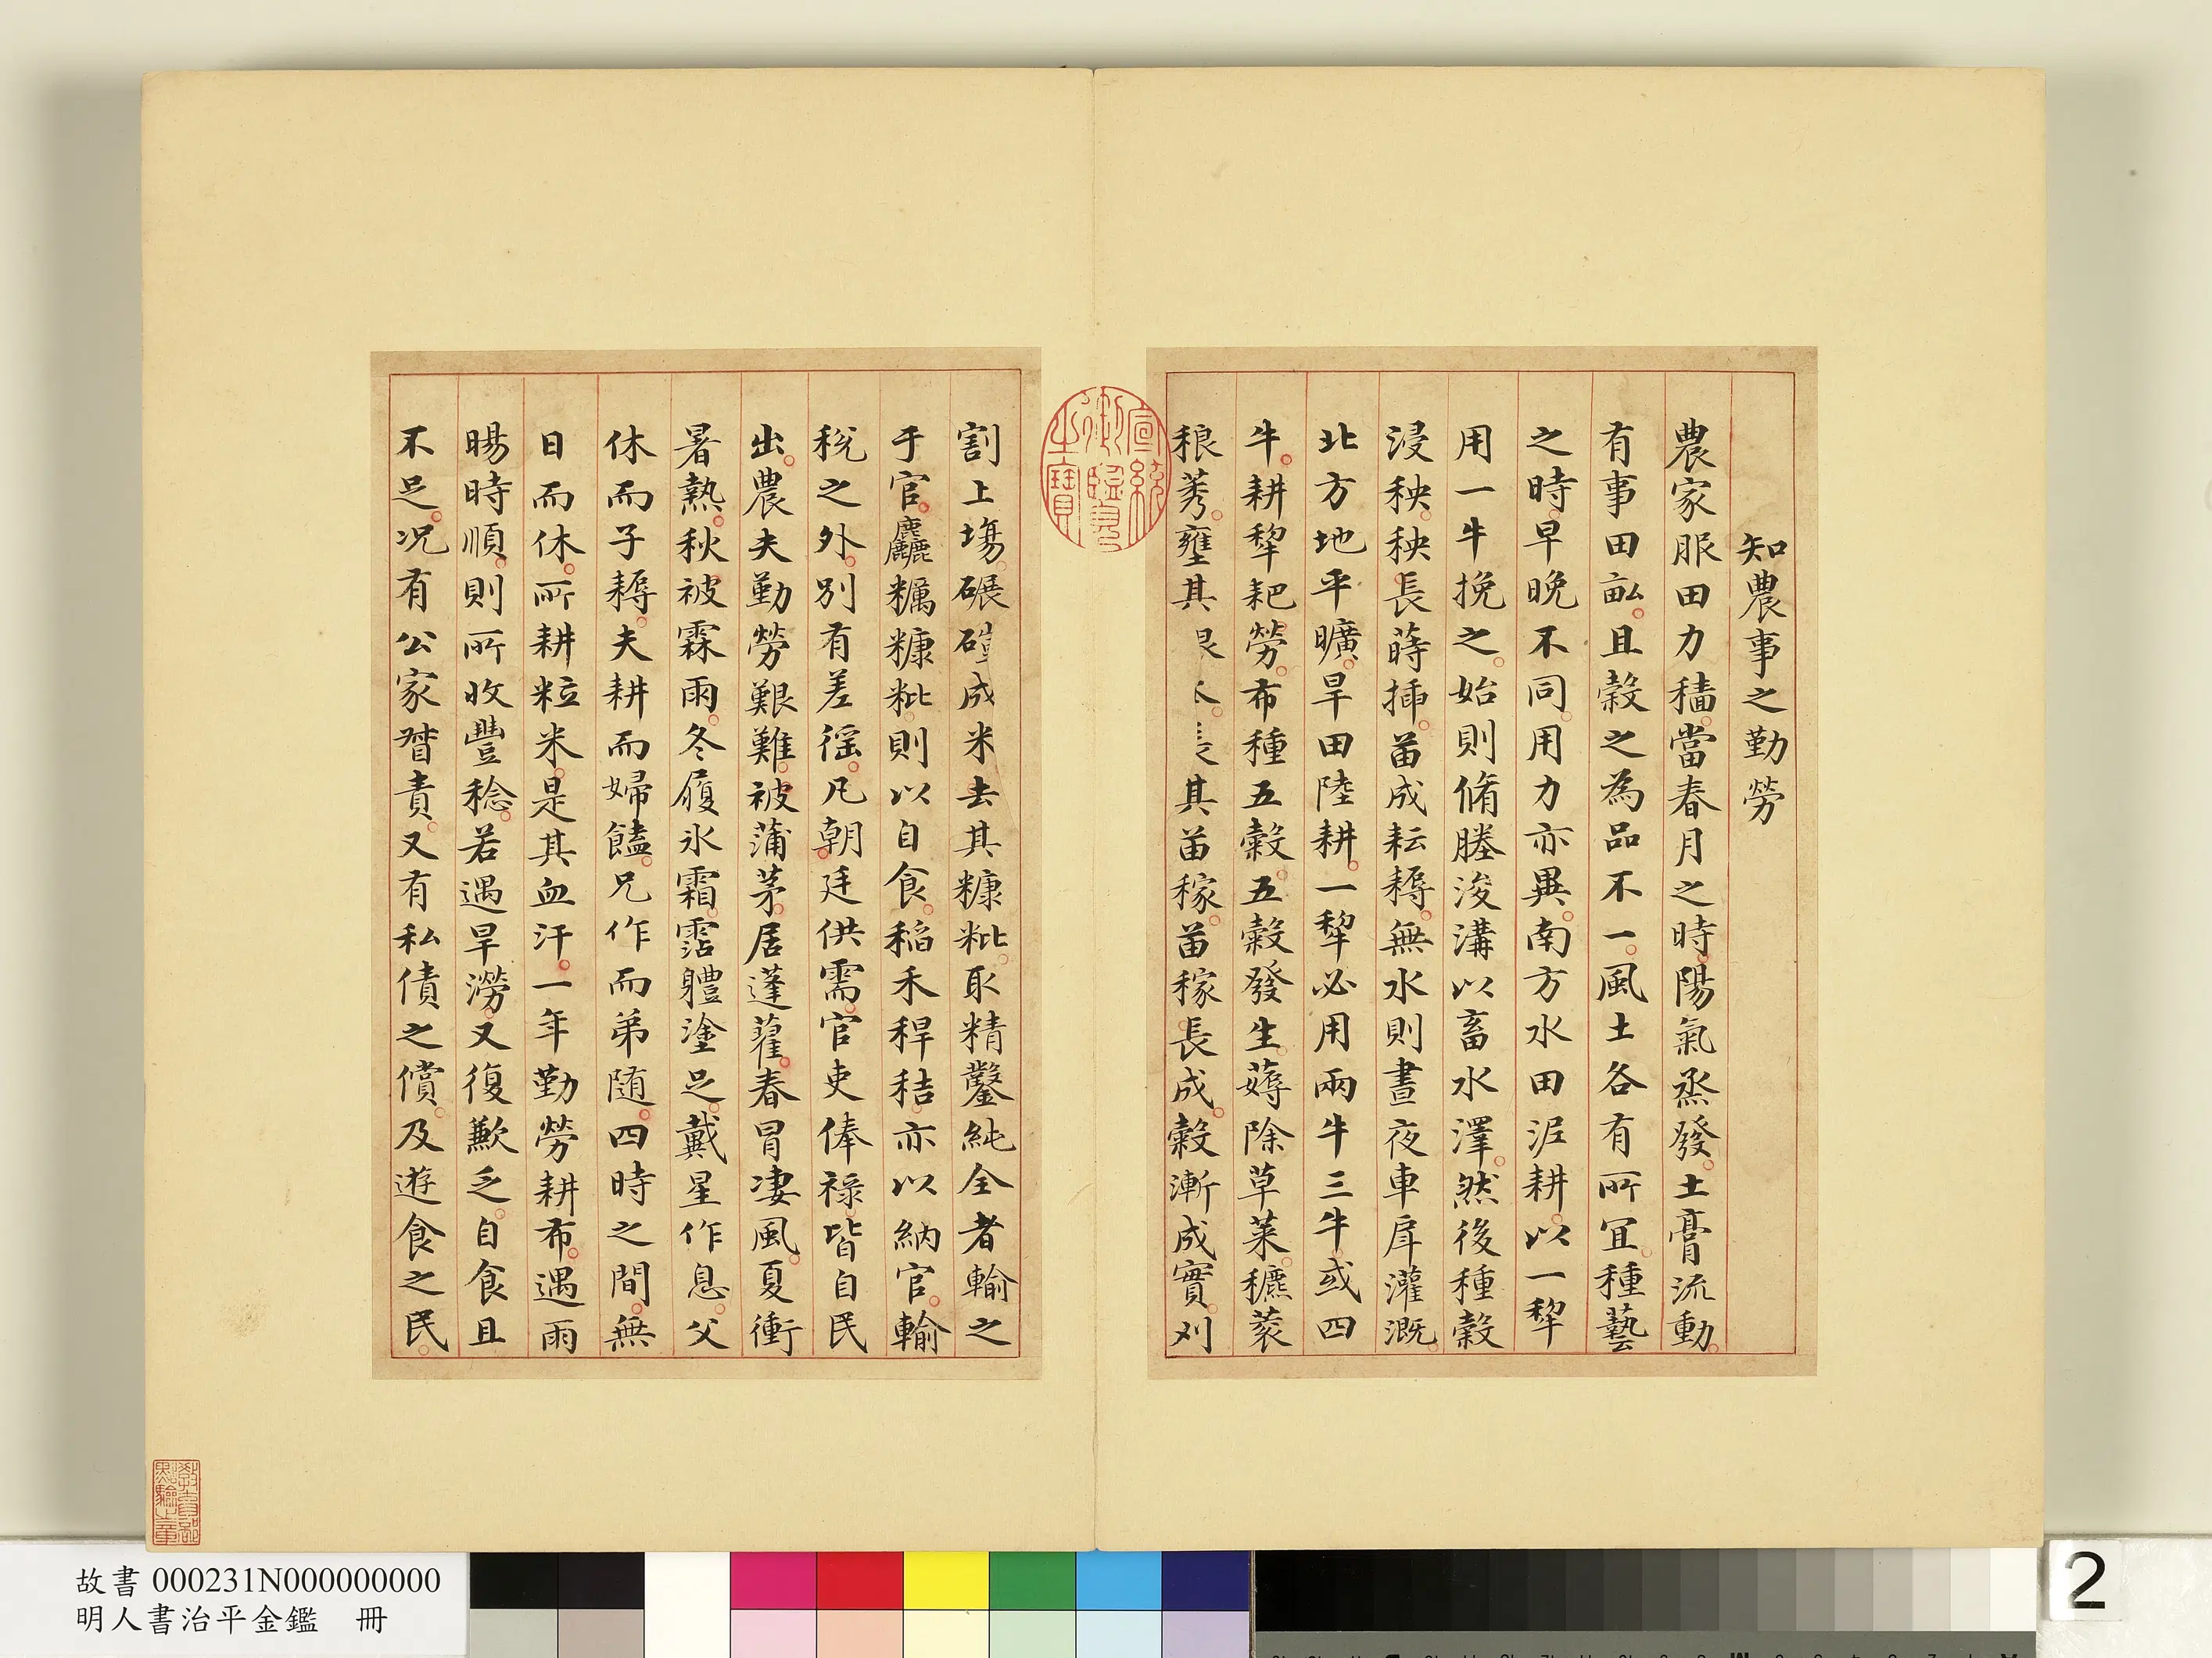 知農事之勤勞
農家服田力穡當春月之時陽氣烝發土膏流動
有事田畝且穀之為品不一風土各有所冝種藝
之時早晚不同用力亦異南方水田泥耕以一犂
用一牛挽之始則脩塍浚溝以畜水澤然後種穀
浸秧秧長蒔揷苗成耘耨無水則晝夜車戽灌溉
北方地平曠旱田陸耕一犂必用兩牛三牛或四
牛耕犂耙勞布種五穀五穀發生薅除草萊穮蔉
稂莠壅其其苗稼苗稼長成穀漸成實刈
割上塲碾磑成米去其糠粃取精鑿純全者輸之
于官麤糲糠粃則以自食稻禾稈秸亦以納官輸
稅之外別有差徭凡朝廷供需官吏俸祿皆自民
出農夫勤勞艱難被蒲茅居蓬藋春冒淒風夏衝
暑熱秋被霖雨冬履氷霜霑體塗足戴星作息父
休而子耨夫耕而婦饁兄作而弟随四時之間無
日而休所耕粒米是其血汗一年勤勞耕布遇雨
暘時順則所收豐稔若遇旱澇又復歉乏自食且
不足况有公家督責又有私債之償及遊食之民
宣統御覽之寶
故書 000231N000000000
明人書治平金鑑 冊
2